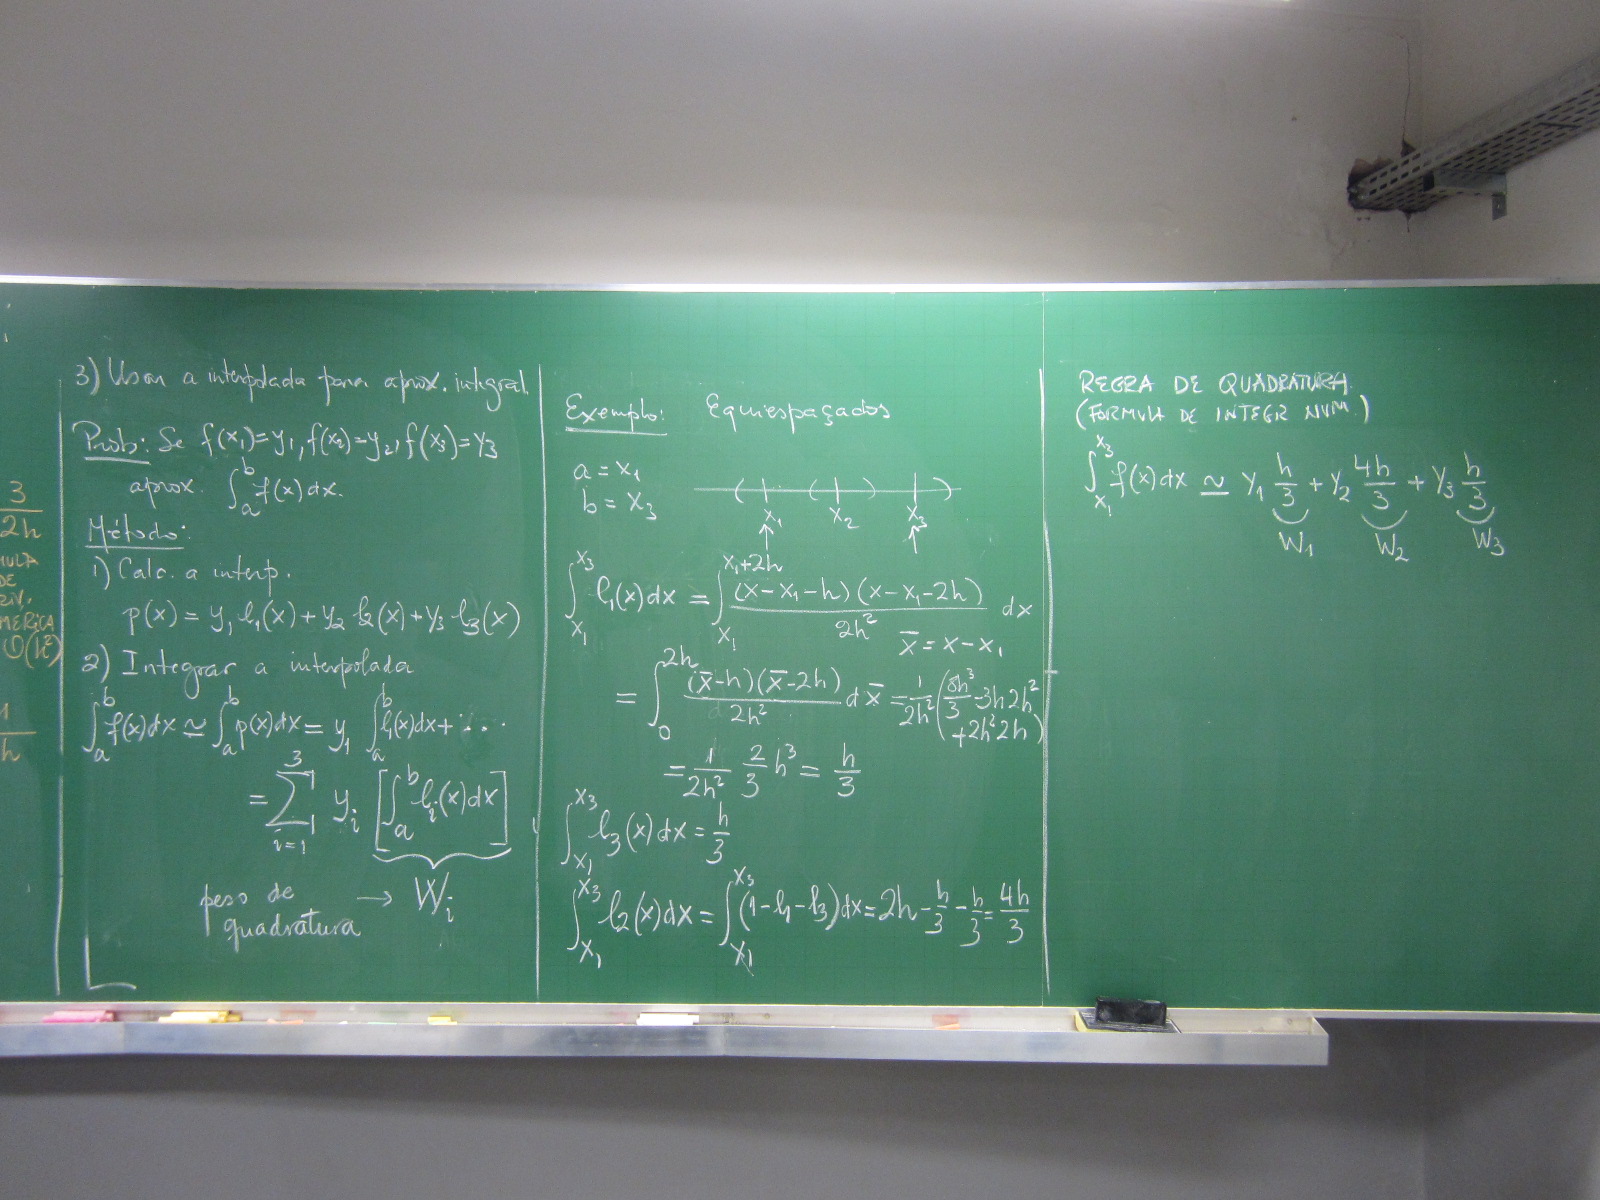 3
2h
MULA
DE
MÉRICA
O(h²)
1
h
3) Usar a interpolada para aprox. integral.
Prob: Se f(x₁)=y₁, f(x₂)=y₂, f(x₃)=y₃
aprox. ∫ₐᵇ f(x)dx.
Método:
1) Calc. a interp.
p(x) = y₁ ℓ₁(x) + y₂ ℓ₂(x) + y₃ ℓ₃(x)
2) Integrar a interpolada
∫ₐᵇ f(x)dx ≃ ∫ₐᵇ p(x)dx = y₁ ∫ₐᵇ ℓ₁(x)dx + ...
= Σ_{i=1}^{3} yᵢ [∫ₐᵇ ℓᵢ(x)dx]
peso de quadratura → Wᵢ
Exemplo: Equiespaçados
a = x₁
b = x₃
x₁ x₂ x₃
∫_{x₁}^{x₃} ℓ₁(x)dx = ∫_{x₁}^{x₁+2h} (x-x₁-h)(x-x₁-2h)/2h² dx
x̄ = x - x₁
= ∫₀^{2h} (x̄-h)(x̄-2h)/2h² dx̄ = 1/2h² (8h³/3 - 3h2h²
+2h²2h)
= 1/2h² 2/3 h³ = h/3
∫_{x₁}^{x₃} ℓ₃(x)dx = h/3
∫_{x₁}^{x₃} ℓ₂(x)dx = ∫_{x₁}^{x₃} (1-ℓ₁-ℓ₃)dx = 2h - h/3 - h/3 = 4h/3
REGRA DE QUADRATURA
(FÓRMULA DE INTEGR NUM.)
∫_{x₁}^{x₃} f(x)dx ≃ y₁ h/3 + y₂ 4h/3 + y₃ h/3
W₁ W₂ W₃